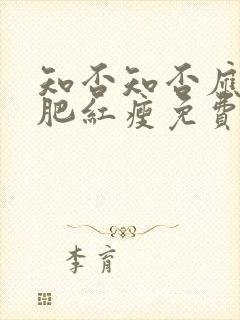 知否知否應
肥紅瘦免費
李育